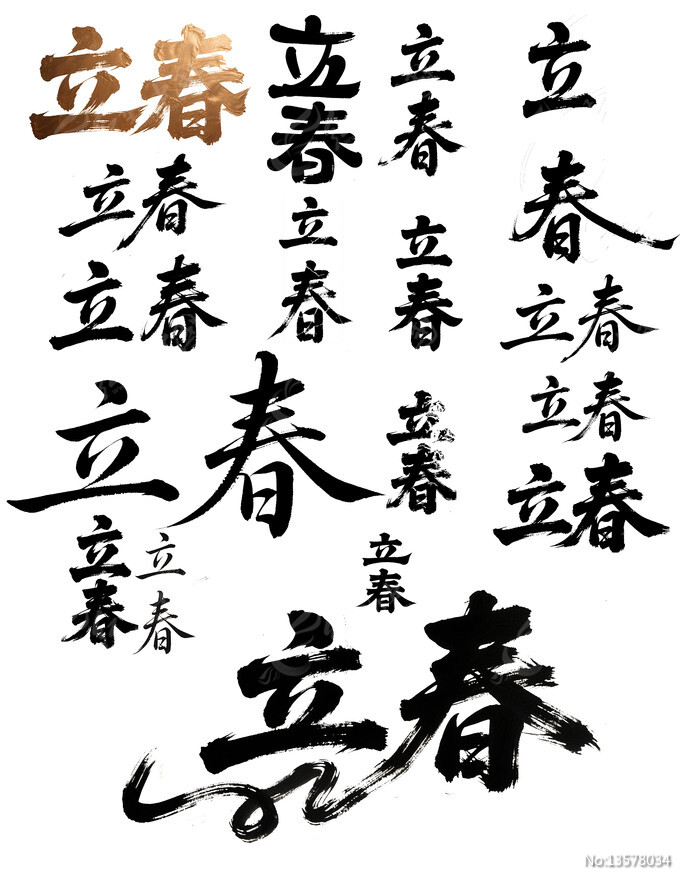 立春
立
春
立
春
立
春
立春
立
春
立
春
立春
立春
立春
立春
立
春
立春
立
春
立
春
立
春
立春
No:13578034